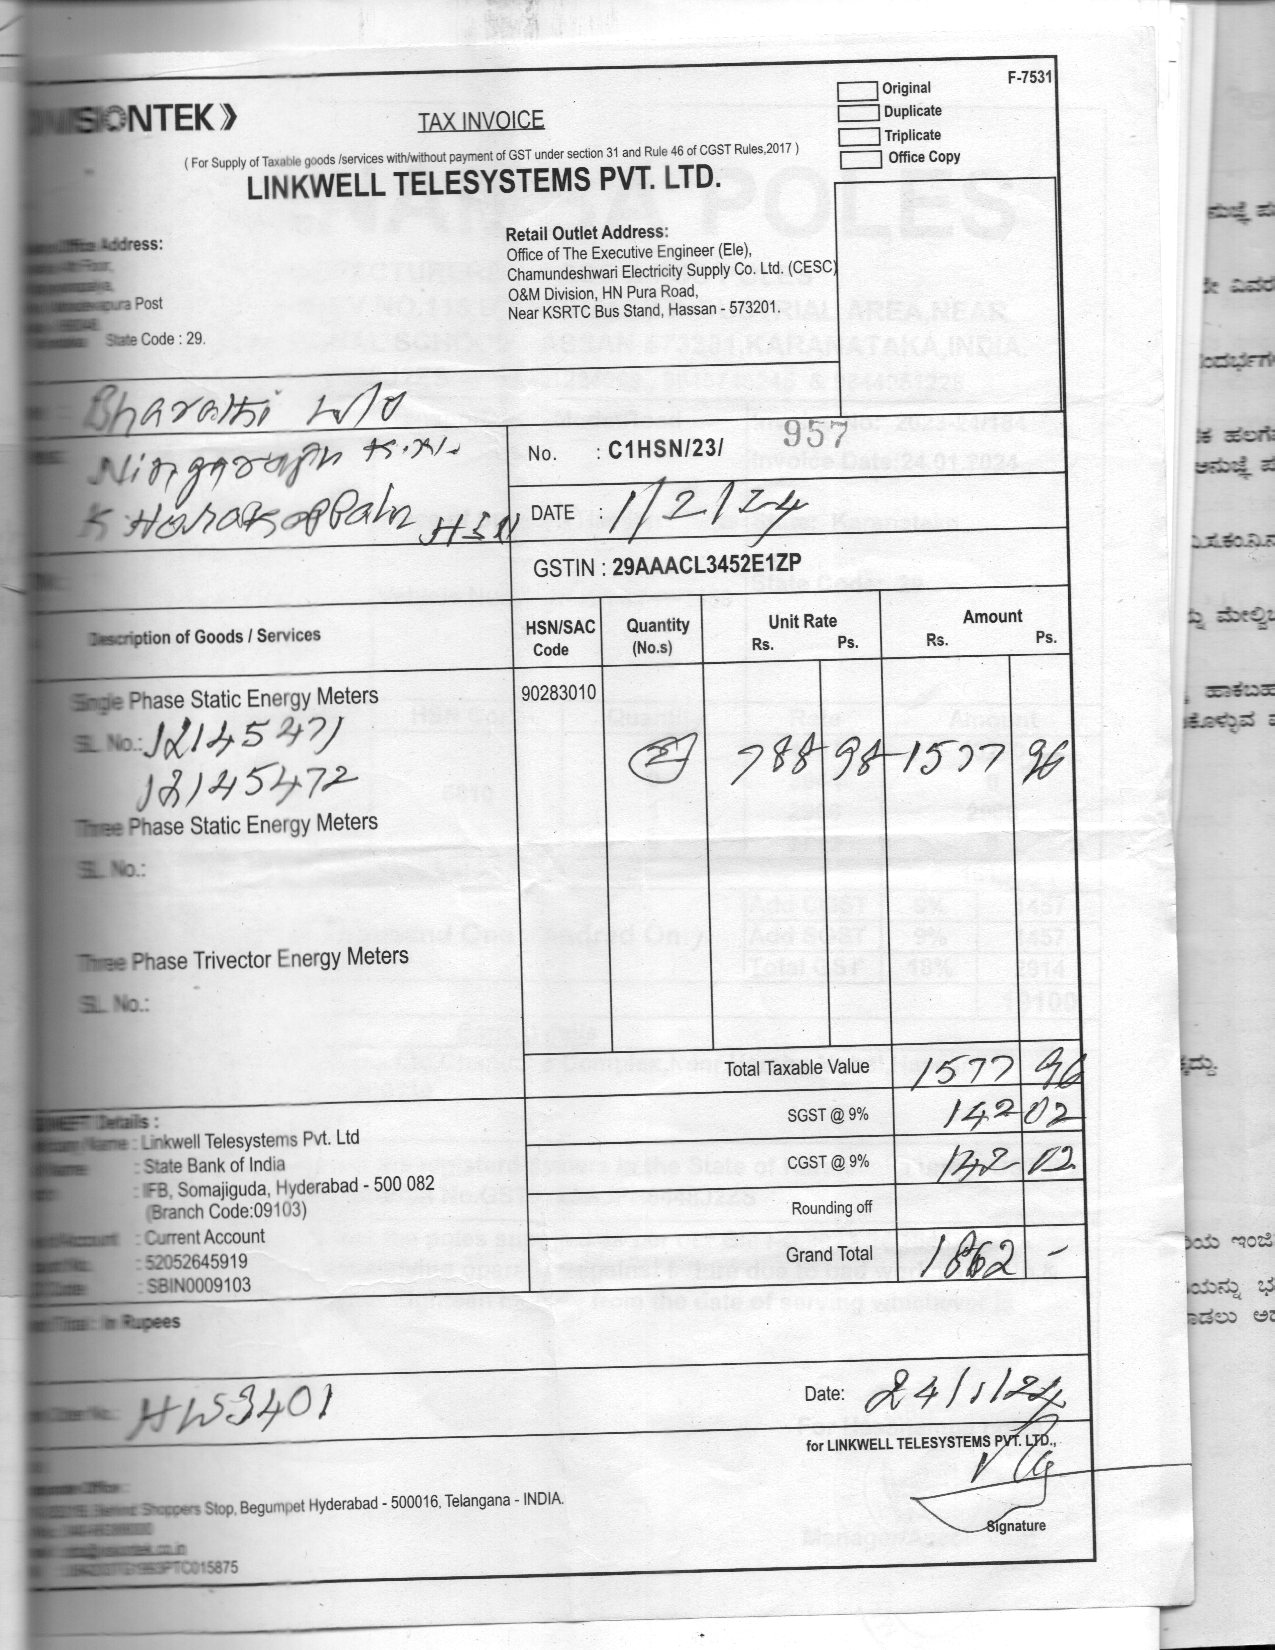 F-7531
VISIONTEK
TAX INVOICE
Original
Duplicate
Triplicate
Office Copy
( For Supply of Taxable goods /services with/without payment of GST under section 31 and Rule 46 of CGST Rules,2017 )
LINKWELL TELESYSTEMS PVT. LTD.
Office Address:
Post
State Code : 29.
Retail Outlet Address:
Office of The Executive Engineer (Ele),
Chamundeshwari Electricity Supply Co. Ltd. (CESC)
O&M Division, HN Pura Road,
Near KSRTC Bus Stand, Hassan - 573201.
Bharathi W/o
HSN
No. : C1HSN/23/ 957
DATE : 1/2/24
GSTIN : 29AAACL3452E1ZP
Description of Goods / Services HSN/SAC Code Quantity (No.s) Unit Rate Rs. Ps. Amount Rs. Ps.
Single Phase Static Energy Meters 90283010
SL No.: 12145471 2 788 98 1577 96
12145472
Three Phase Static Energy Meters
SL No.:
Three Phase Trivector Energy Meters
SL No.:
Total Taxable Value 1577 96
SGST @ 9% 142 02
CGST @ 9% 142 02
Rounding off
Grand Total 1862 -
Details :
Name : Linkwell Telesystems Pvt. Ltd
: State Bank of India
: IFB, Somajiguda, Hyderabad - 500 082
(Branch Code:09103)
Account : Current Account
: 52052645919
: SBIN0009103
In Rupees
HW3401
Date: 24/1/24
for LINKWELL TELESYSTEMS PVT. LTD.,
Signature
Behind Shoppers Stop, Begumpet Hyderabad - 500016, Telangana - INDIA.
PTC015875